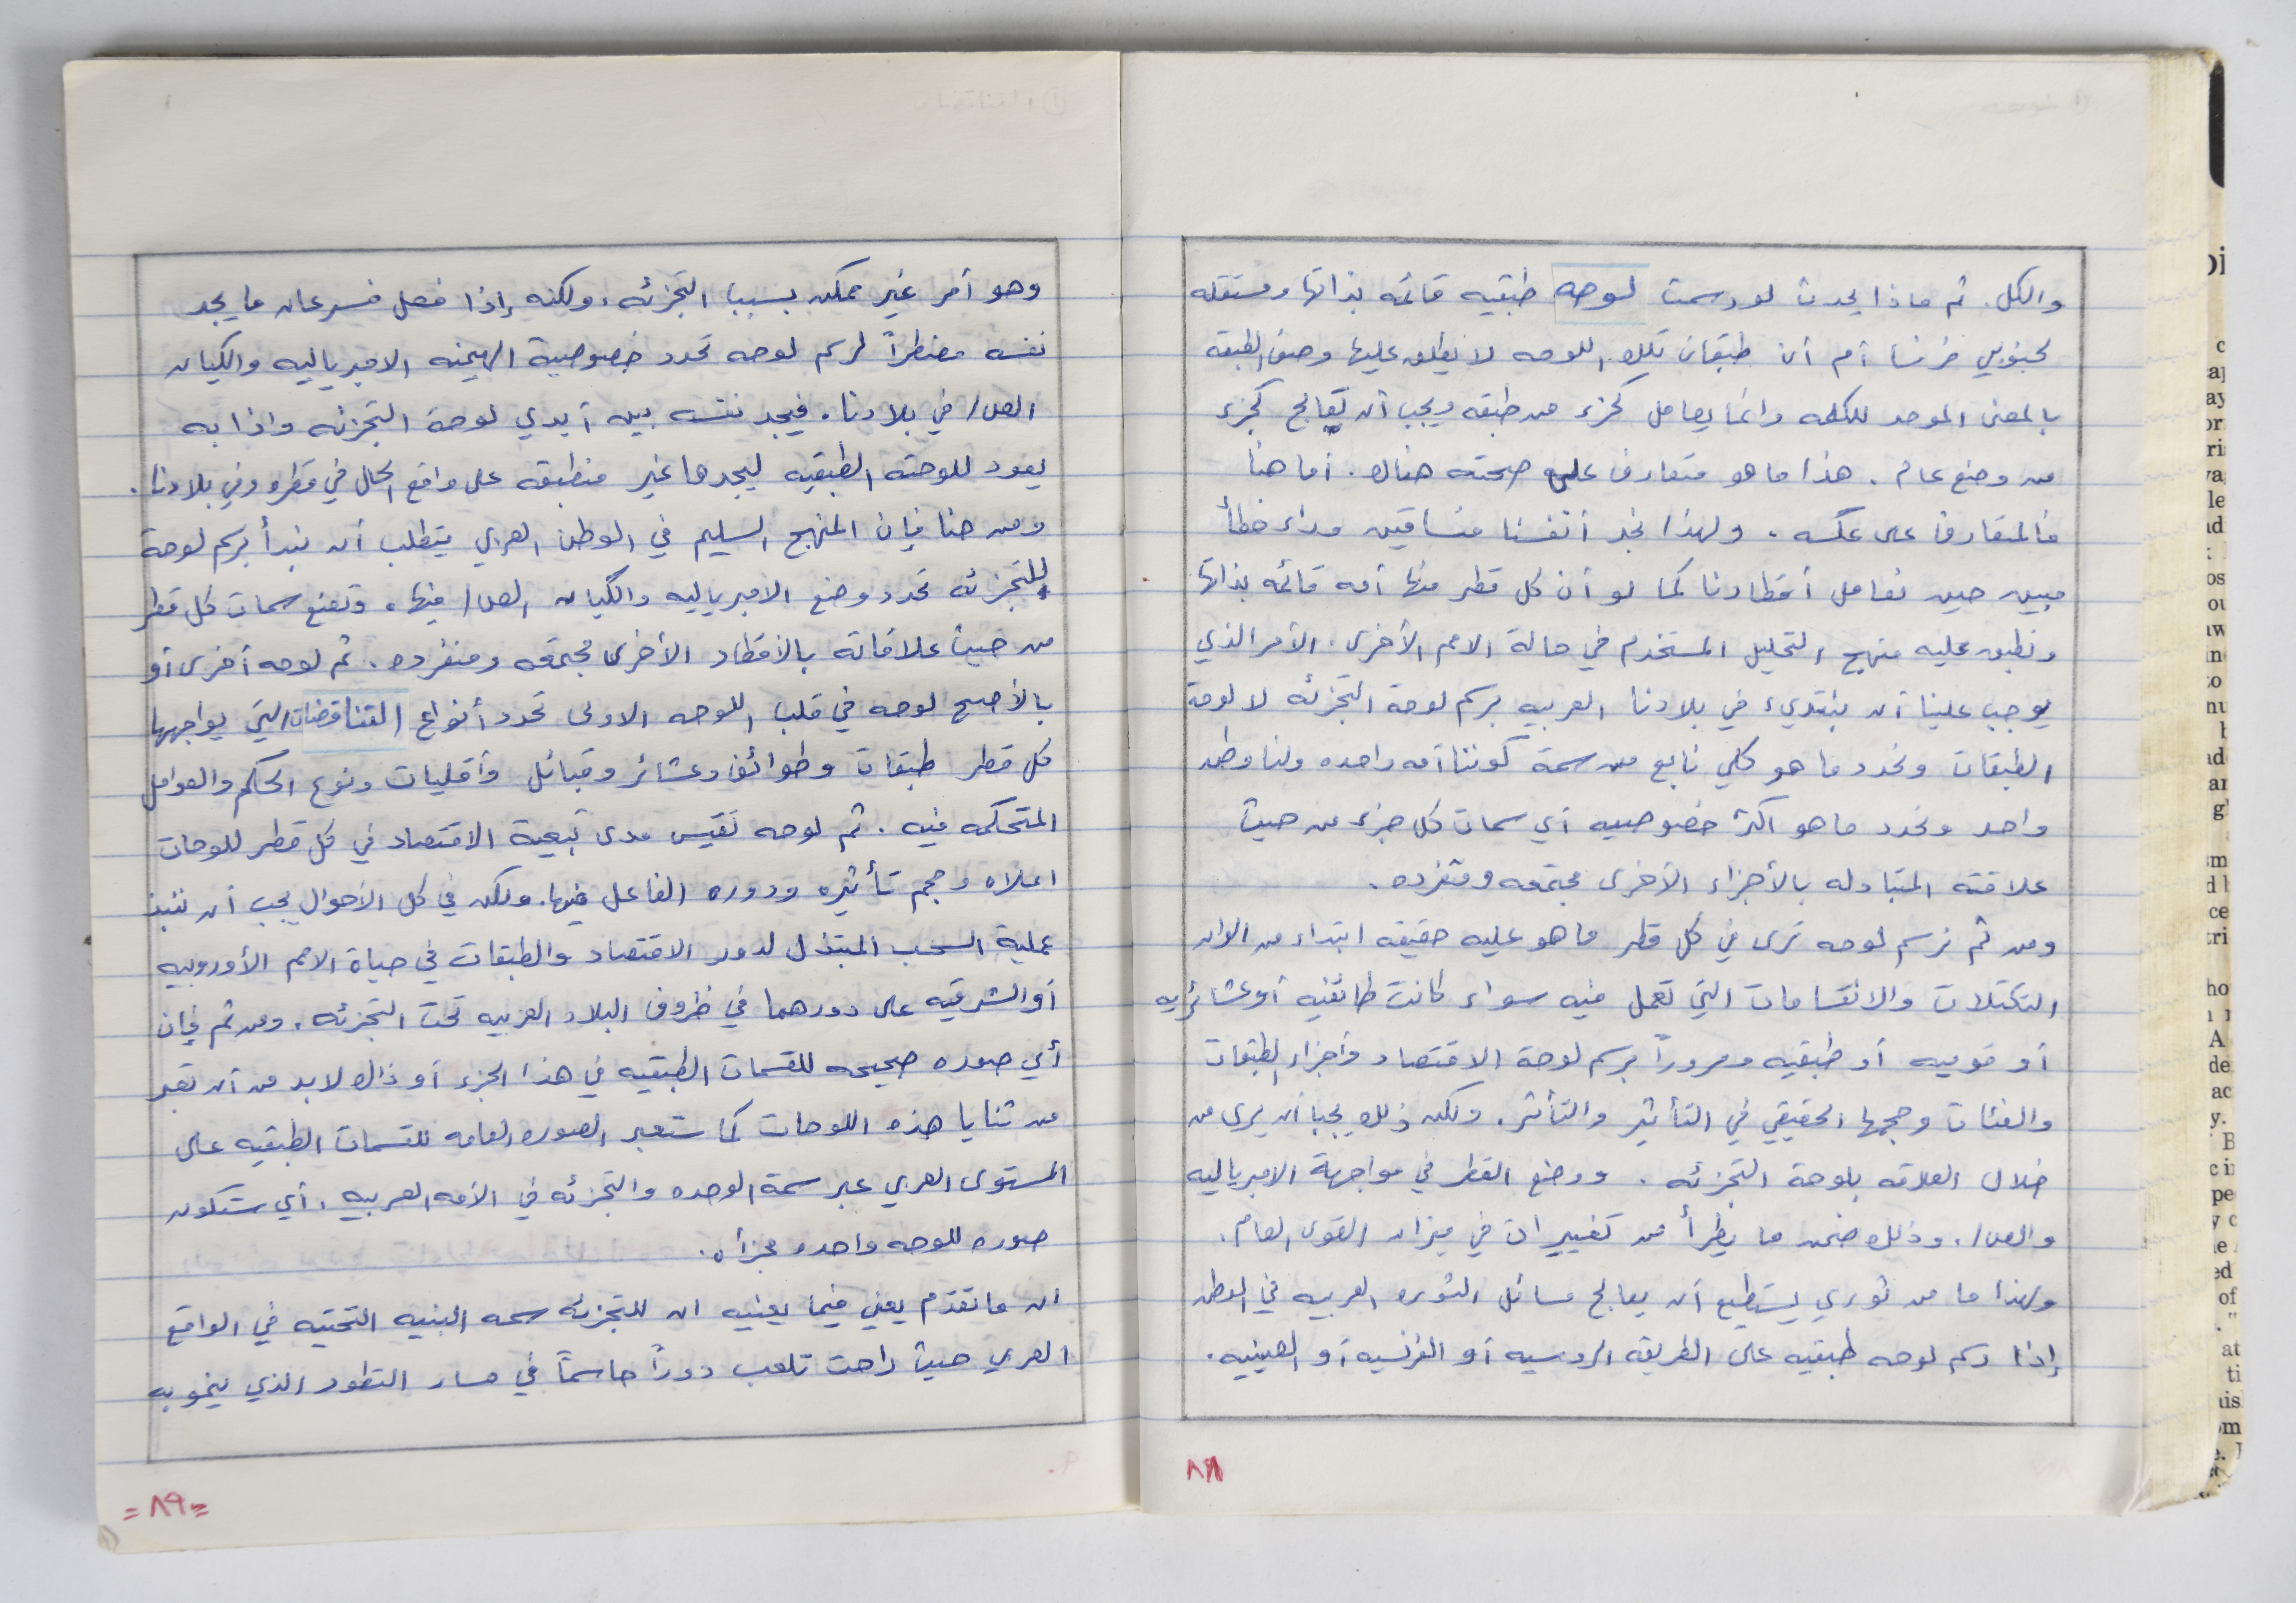 والكل. ثم ماذا يحدث لو رسمت لوحه طبقيه قائمه بذاتها ومستقله
لجنوبي فرنسا أم أن طبقات تلك اللوحه لا يطلق عليها وصف الطبقه
بالمعنى الموحد للكلمه وانما يعامل كجزء من طبقه ويجب أن تعالج كجزء
من وضع عام. هذا ما هو متعارف على صحته هناك. أما هنا
فالمتعارف على عكسه. ولهذا نجد أنفسنا منساقين وراء خطأ
مبين حين نعامل أقطارنا كما لو أن كل قطر منها أمه قائمه بذاتها
ونطبق عليه منهج التحليل المستخدم في حالة الامم الأخرى. الأمر الذي
يوجب علينا أن نبتدىء في بلادنا العربيه برسم لوحة التجزئه لا لوحة
الطبقات ونحدد ما هو كلي نابع من سمة كوننا أمه واحده ولنا وطن
واحد ونحدد ما هو اكثر خصوصيه أي سمات كل جزء من حيث
علاقته المتبادله بالأجزاء الأخرى مجتمعه ومنفرده.
ومن ثم نرسم لوحه نرى في كل قطر ما هو عليه حقيقه ابتداء من الوان
التكتلات والانقسامات التي تعمل فيه سواء كانت طائفيه أو عشائريه
أو قوميه أو طبقيه ومروراً برسم لوحة الاقتصاد وأجزاء الطبقات
والفئات وحجمها الحقيقي في التأثير والتأثر. ولكن ذلك يجب أن يرى من
خلال العلاقه بلوحة التجزئه. ووضع القطر في مواجهة الامبرياليه
والص/. وذلك ضمن ما يطرأ من تغييرات في ميزان القوى العام.
ولهذا ما من ثوري يستطيع أن يعالج مسائل الثوره العربيه في الوطن
إذا رسم لوحه طبقيه على الطريقه الروسيه أو الفرنسيه أو الصينيه.
٨٨
وهو أمر غير ممكن بسبب التجزئه، ولكنه إذا فعل فسرعان ما يجد
نفسه مضطراً لرسم لوحه تحدد خصوصية الهيمنه الامبرياليه والكيان
الص/ في بلادنا. فيجد نفسه بين أيدي لوحة التجزئه واذا به
يعود للوحته الطبقيه ليجدها غير منطبقه على واقع الحال في قطره وفي بلادنا.
ومن هنا فإن المنهج السليم في الوطن العربي يتطلب أن نبدأ برسم لوحة
للتجزئه تحدد وضع الامبرياليه والكيان الص/ فيها، وتضع سمات كل قطر
من حيث علاقاته بالأقطار الأخرى مجتمعه ومنفرده. ثم لوحه أخرى أو
بالأصح لوحه في قلب اللوحه الاولى تحدد أنواع التناقضات التي يواجهها
كل قطر طبقات وطوائف وعشائر وقبائل وأقليات ونوع الحكم والعوامل
المتحكمه فيه. ثم لوحه تقيس مدى تبعية الاقتصاد في كل قطر للوحات
اعلاه وحجم تأثيره ودوره الفاعل فيها. ولكن في كل الأحوال يجب أن ننبذ
عملية السحب المبتذل لدور الاقتصاد والطبقات في حياة الامم الأوروبيه
أو الشرقيه على دورهما في ظروف البلاد العربيه تحت التجزئه. ومن ثم فإن
أي صوره صحيحه للقسمات الطبقيه في هذا الجزء أو ذاك لابد من أن تعبر
من ثنايا هذه اللوحات كما ستعبر الصوره العامه للقسمات الطبقيه على
المستوى العربي عبر سمة الوحده والتجزئه في الأمه العربيه، أي ستكون
صوره للوحه واحده مجزأه.
ان ما تقدم يعني فيما يعنيه ان للتجزئه سمه البنيه التحتيه في الواقع
العربي حيث راحت تلعب دوراً حاسماً في مسار التطور الذي ينحو به
= ٨٩ =